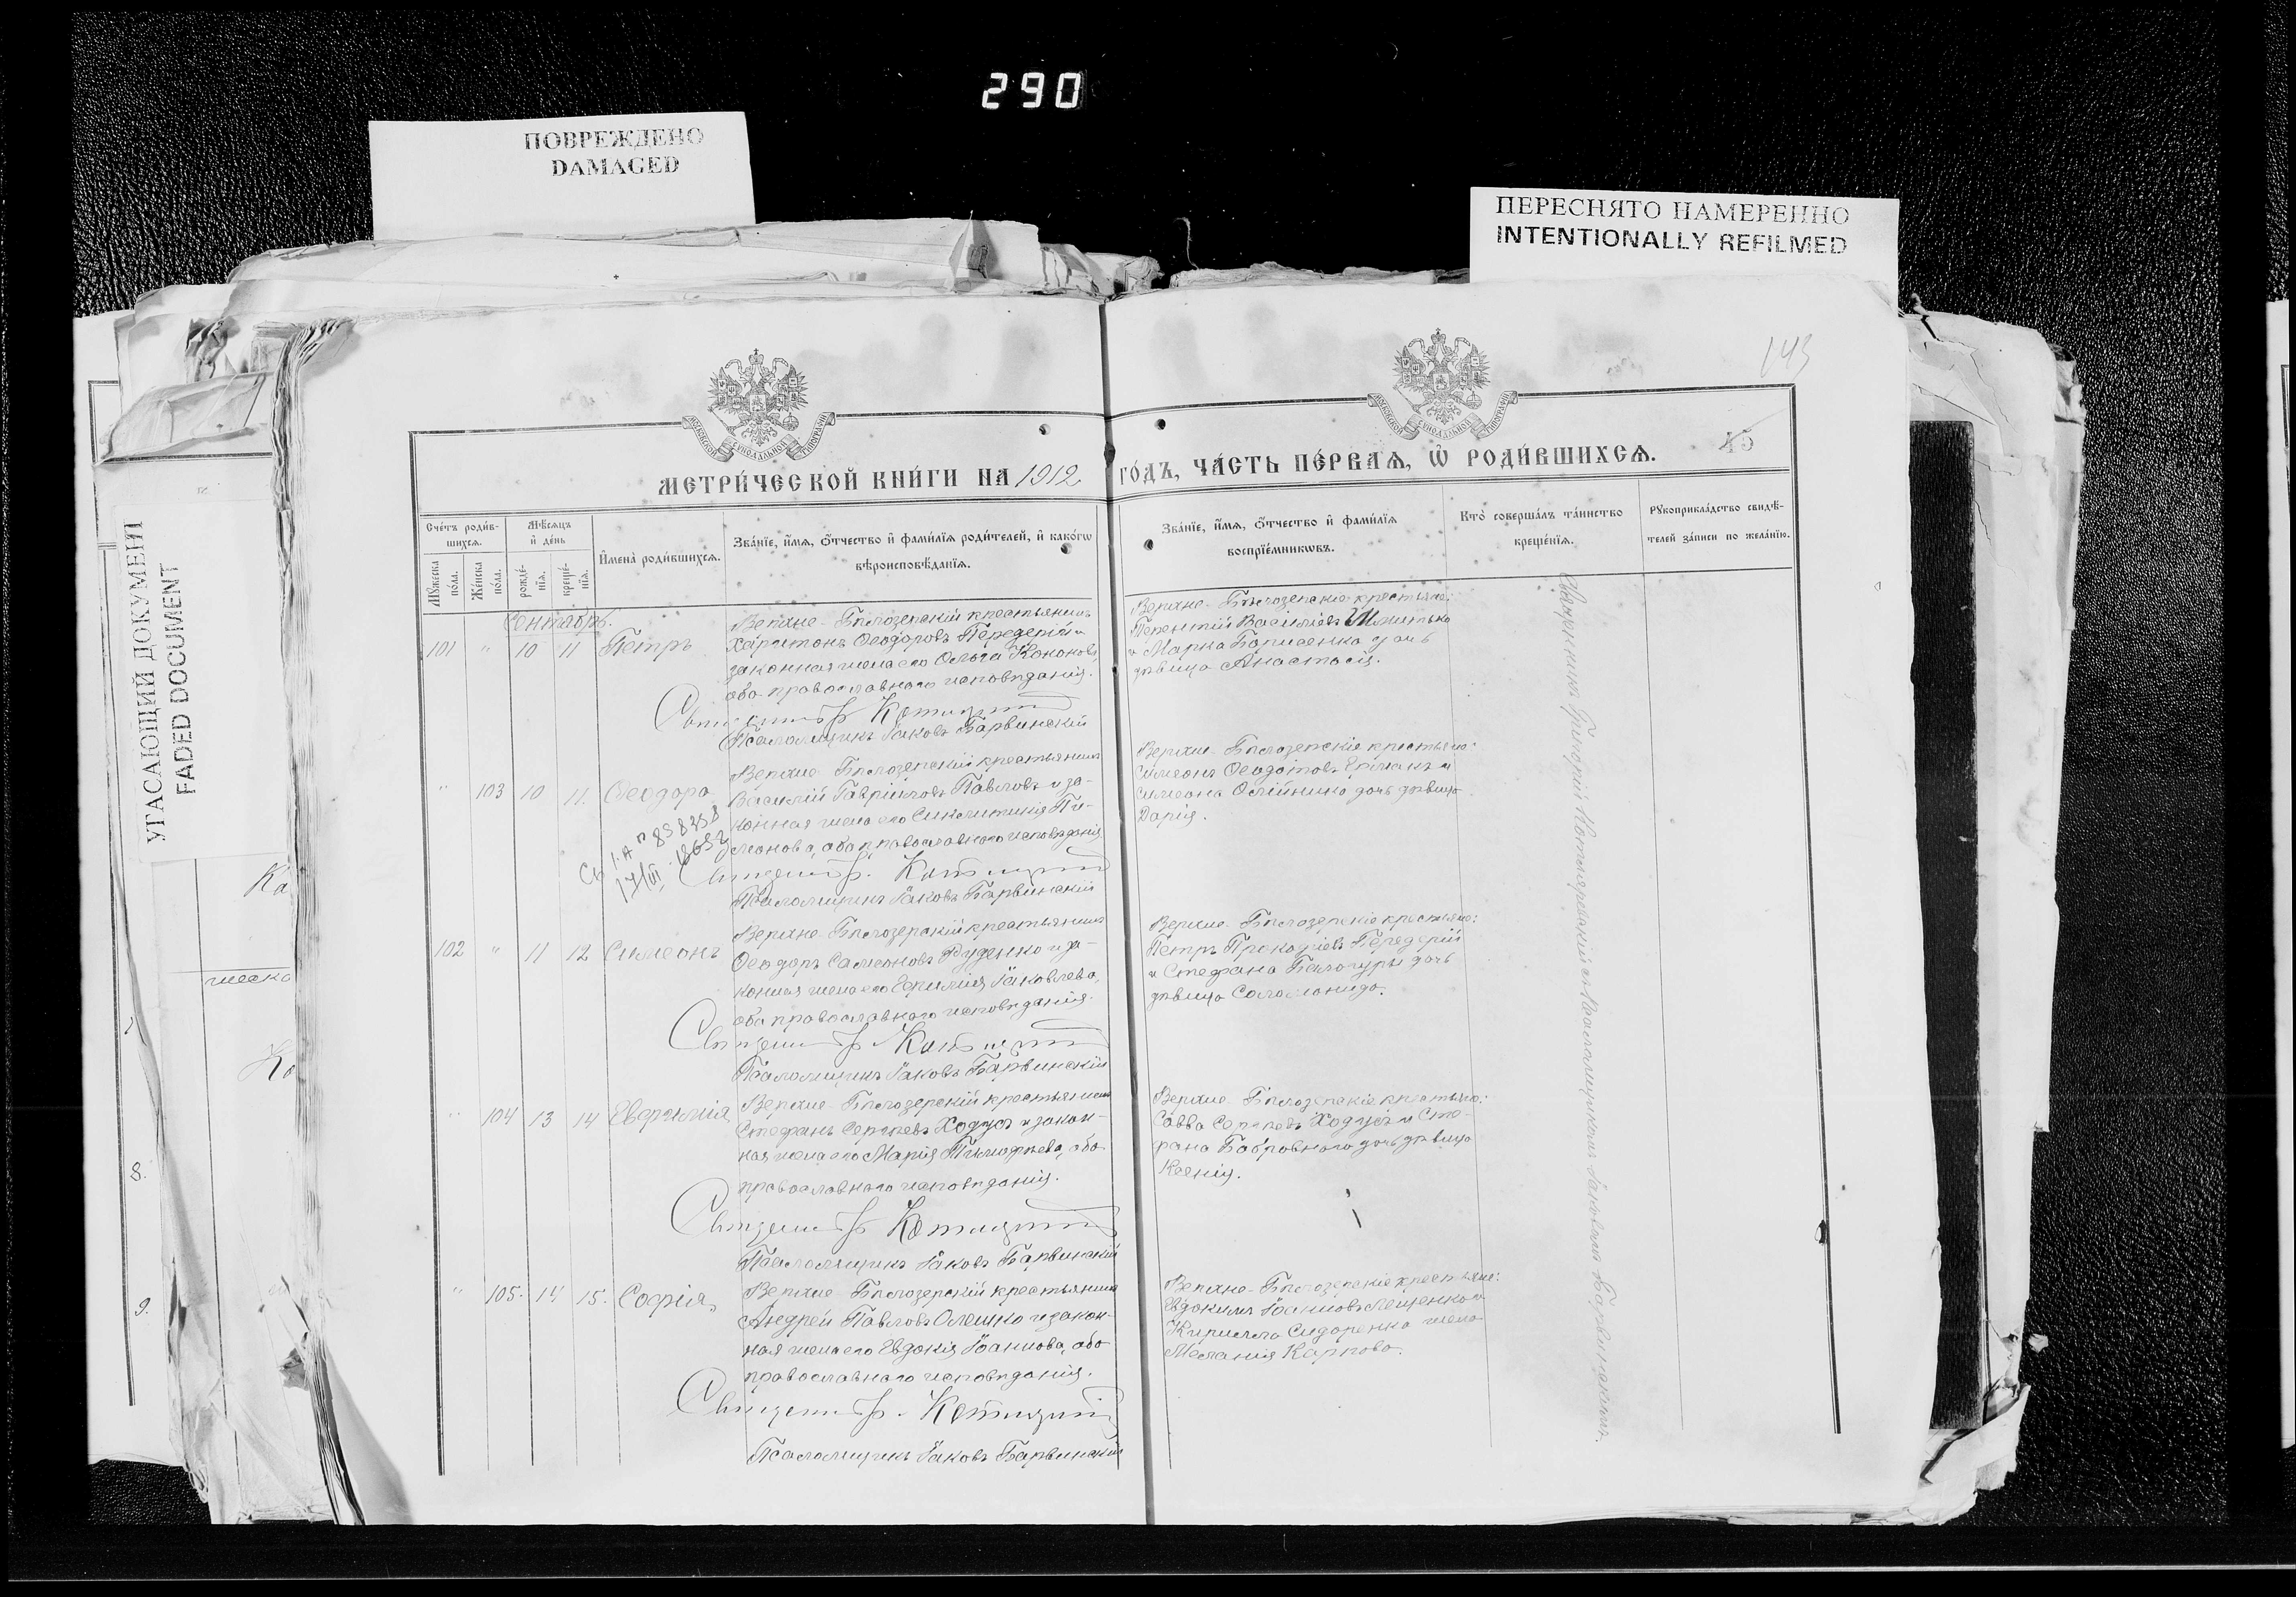 290
ПОВРЕЖДЕНО
DAMAGED
ПЕРЕСНЯТО НАМЕРЕННО
INTENTIONALLY REFILMED
УГАСАЮЩИЙ ДОКУМЕНТ
FADED DOCUMENT
143
45
МЕТРИ́ЧЕСКОЙ КНИ́ГИ НА 1912 ГО́ДЪ, ЧА́СТЬ ПЕ́РВАѦ, Ѡ҆ РОДИ́ВШИХСѦ.
Сче́тъ роди́в-
шихсѧ.
Мѣ́сѧцъ
и҆ де́нь
Мꙋ́жеска
по́ла.
Же́нска
по́ла.
рожде́-
нїѧ.
креще́-
нїѧ.
И҆мена̀ роди́вшихсѧ.
Зва́нїе, и҆́мѧ, ѻ҆́тчество и҆ фами́лїѧ роди́телей, и҆ како́гѡ
вѣроисповѣ́данїѧ.
Зва́нїе, и҆́мѧ, ѻ҆́тчество и҆ фами́лїѧ
воспрїе́мникѡвъ.
Кто̀ соверша́лъ та́инство
креще́нїѧ.
Рꙋкоприкла́дство свидѣ́-
телей за́писи по жела́нїю.
Сентябрь.
101 " 10 11 Петръ
Верхне-Бѣлозерскій крестьянинъ
Харитонъ Ѳеодоровъ Передерій и
законная жена его Ольга Кононова,
оба православнаго исповѣданія.
Псаломщикъ Іаковъ Барвинскій
Верхне-Бѣлозерскіе крестьяне:
Терентій Васильевъ Шмитько
и Марка Борисенка дочь
дѣвица Анастасія.
" 103 10 11. Ѳеодора
Верхне-Бѣлозерскій крестьянинъ
Василій Гавріиловъ Павловъ и за-
конная жена его Синклитикія Ти-
монова, оба православнаго исповѣданія
Псаломщикъ Іаковъ Барвинскій
Верхне-Бѣлозерскіе крестьяне:
Симеонъ Ѳеодотовъ Ермакъ и
Симеона Олійника дочь дѣвица
Дарія.
102 " 11 12 Симеонъ
Верхне-Бѣлозерскій крестьянинъ
Ѳеодоръ Самсоновъ Руденко и за-
конная жена его Евфимія Іаковлева,
оба православнаго исповѣданія.
Псаломщикъ Іаковъ Барвинскій
Верхне-Бѣлозерскіе крестьяне:
Петръ Прокофіевъ Передерій
и Стефана Белогуры дочь
дѣвица Соломонида.
" 104 13 14 Евфимія
Верхне-Бѣлозерскій крестьянинъ
Стефанъ Сергѣевъ Ходусъ и закон-
ная жена его Марія Тимофѣева, оба
православнаго исповѣданія.
Псаломщикъ Іаковъ Барвинскій
Верхне-Бѣлозерскіе крестьяне:
Савва Сергѣевъ Ходусъ и Сте-
фана Бобровнаго дочь дѣвица
Ксенія.
" 105. 14 15. Софія
Верхне-Бѣлозерскій крестьянинъ
Андрей Павловъ Олешко и закон-
ная жена его Евдокія Іоаннова, оба
православнаго исповѣданія.
Псаломщикъ Іаковъ Барвинскій
Верхне-Бѣлозерскіе крестьяне:
Евдокимъ Іоанновъ Лещенко и
Кирилла Сидоренка жена
Мелания Карпова.